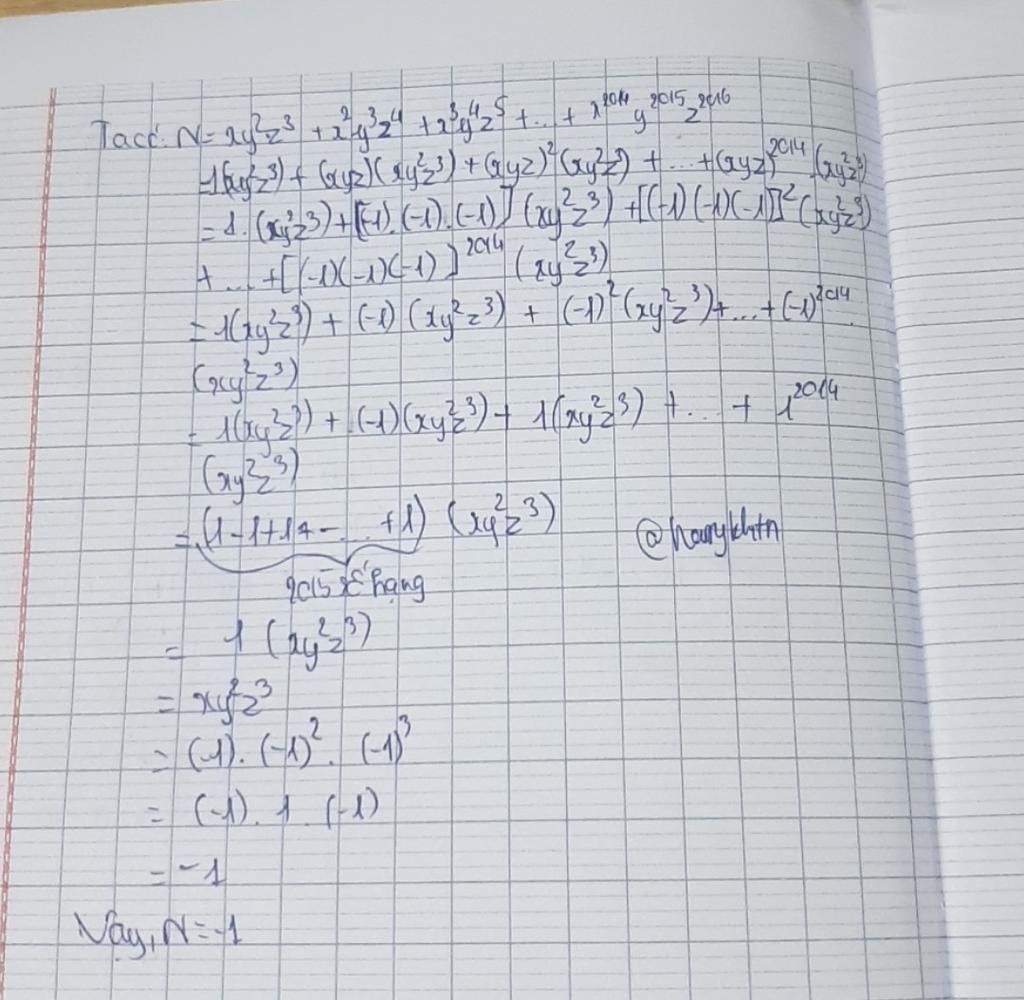 Ta có: N = xy²z³ + x²y³z⁴ + x³y⁴z⁵ + ... + x²⁰¹⁴ y²⁰¹⁵ z²⁰¹⁶
= 1(xy²z³) + (xyz)(xy²z³) + (xyz)²(xy²z³) + ... + (xyz)²⁰¹⁴ (xy²z³)
= 1.(xy²z³) + [(-1).(-1).(-1)](xy²z³) + [(-1)(-1)(-1)]²(xy²z³)
+ ... + [(-1)(-1)(-1)]²⁰¹⁴ (xy²z³)
= 1(xy²z³) + (-1)(xy²z³) + (-1)²(xy²z³) + ... + (-1)²⁰¹⁴.
(xy²z³)
= 1(xy²z³) + (-1)(xy²z³) + 1(xy²z³) + ... + 1²⁰¹⁴
(xy²z³)
= (1-1+1+-...+1) (xy²z³)
@hanykhtn
2015 số hạng
= 1 (xy²z³)
= xy²z³
= (-1). (-1)². (-1)³
= (-1). 1. (-1)
= -1
Vậy, N = -1